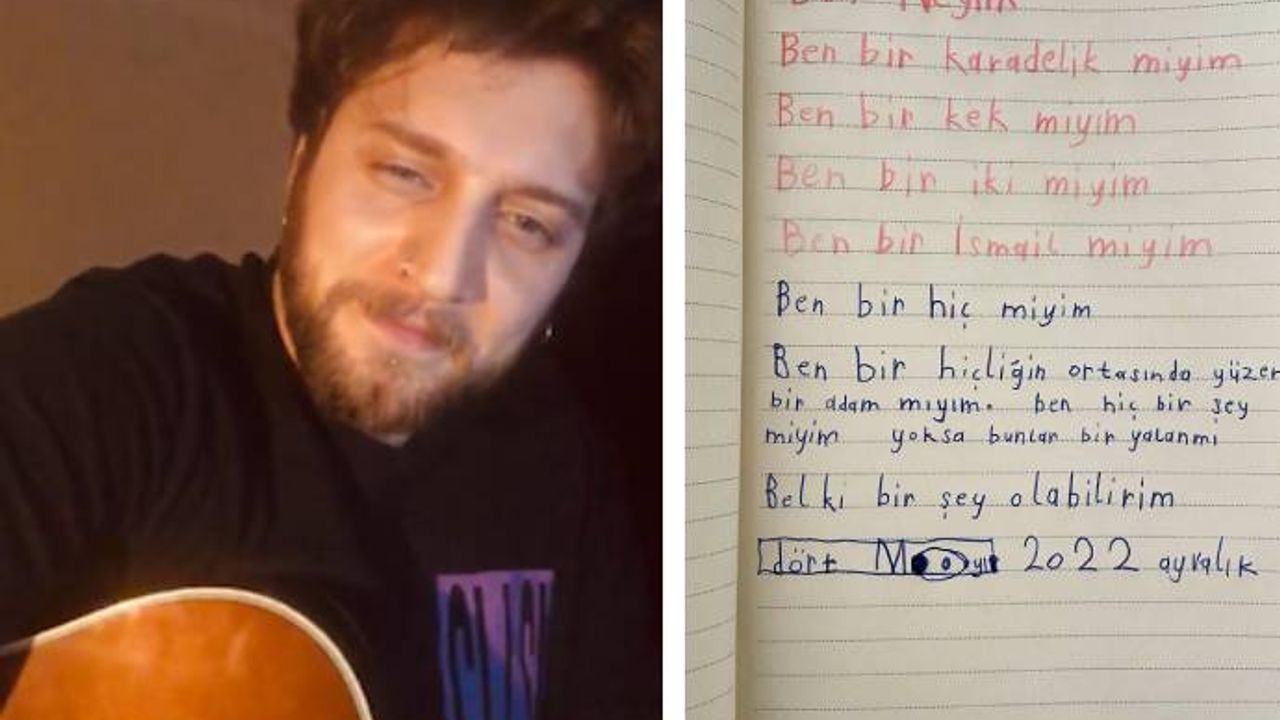 Ben Neyim
Ben bir karadelik miyim
Ben bir kek miyim
Ben bir iki miyim
Ben bir İsmail miyim
Ben bir hiç miyim
Ben bir hiçliğin ortasında yüzen
bir adam mıyım. ben hiç bir şey
miyim yoksa bunlar bir yalanmi
Belki bir şey olabilirim
dört 2022 ayralık